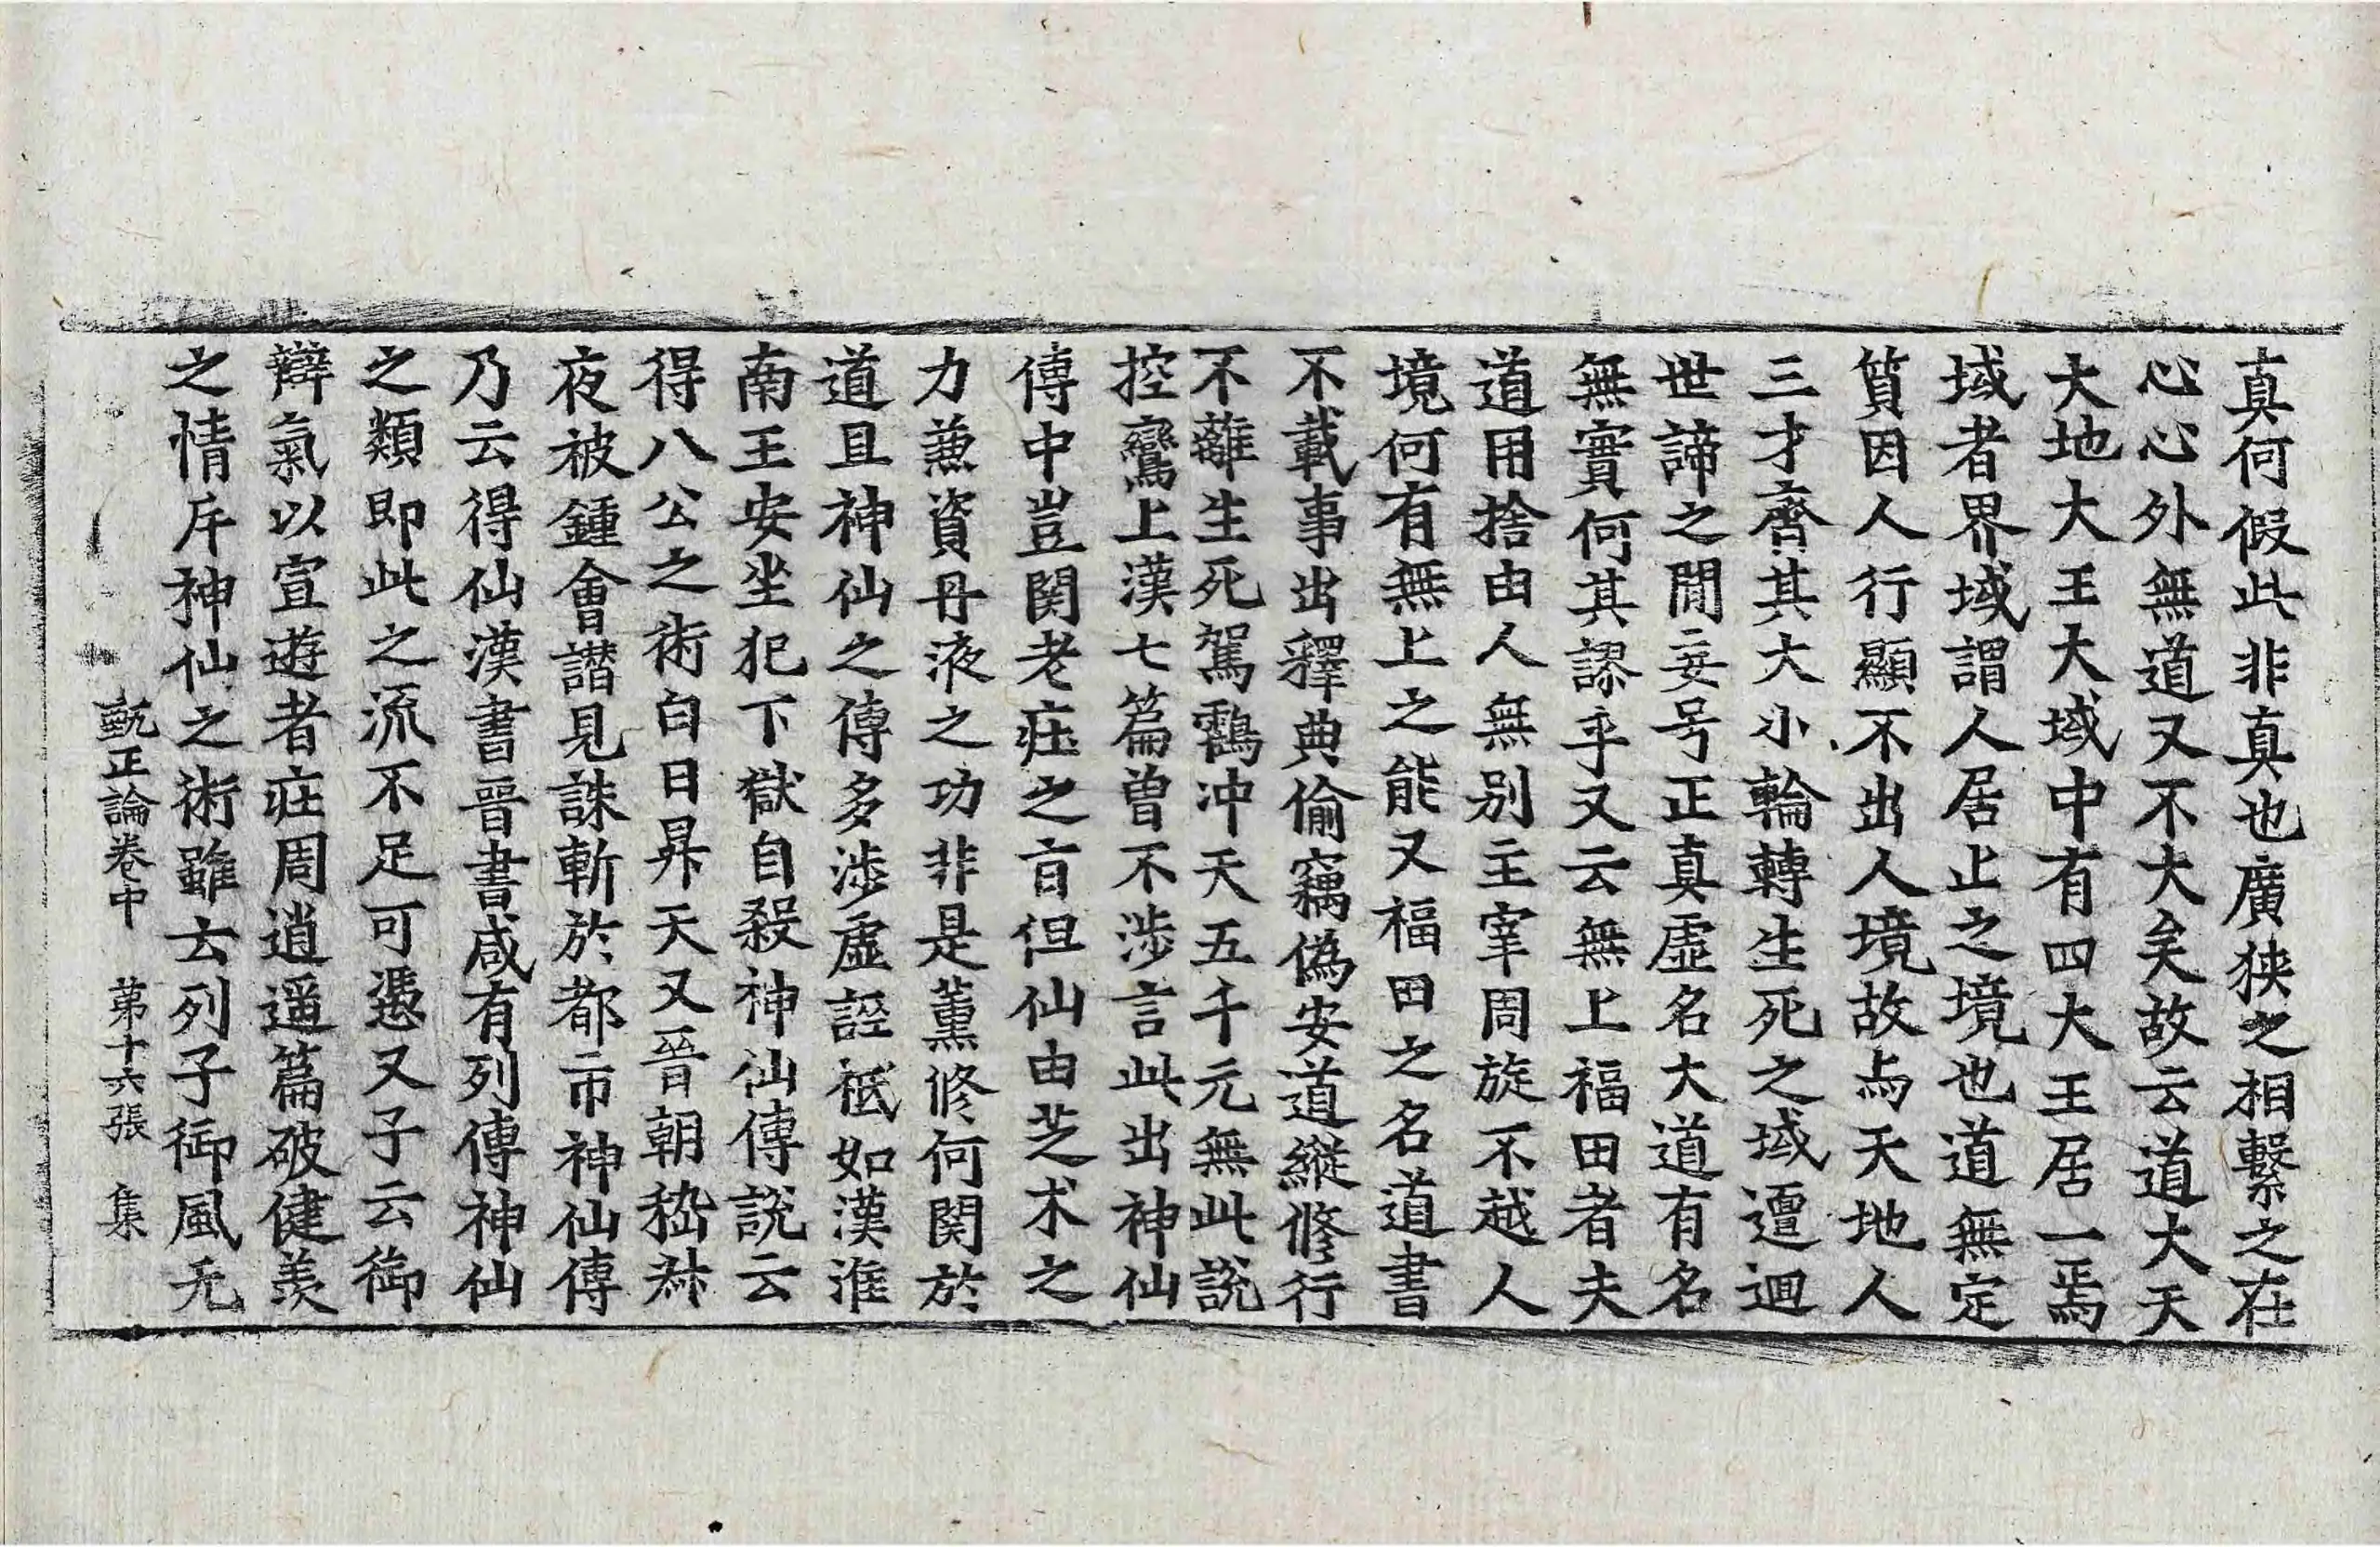 真何假此非真也廣狹之相繫之在
心心外無道又不大矣故云道大天
大地大王大域中有四大王居一焉
域者界域謂人居止之境也道無定
質因人行顯不出人境故与天地人
三才齊其大小輪轉生死之域遭迴
世諦之間妄号正真虛名大道有名
無實何其謬乎又云無上福田者夫
道用捨由人無別主宰周旋不越人
境何有無上之能又福田之名道書
不載事出釋典偷竊偽安道縱修行
不離生死駕鶴冲天五千元無此說
控鸞上漢七篇曾不涉言此出神仙
傳中豈関老莊之旨但仙由芝术之
力兼資丹液之功非是薫修何関於
道且神仙之傳多涉虛誣祇如漢淮
南王安坐犯下獄自殺神仙傳說云
得八公之術白日昇天又晉朝嵇叔
夜被鍾會譖見誅斬於都市神仙傳
乃云得仙漢書晉書咸有列傳神仙
之類即此之流不足可憑又子云御
辯氣以宣遊者莊周逍遥篇破健羨
之情斥神仙之術雖云列子御風无
甄正論卷中　第十六張　集